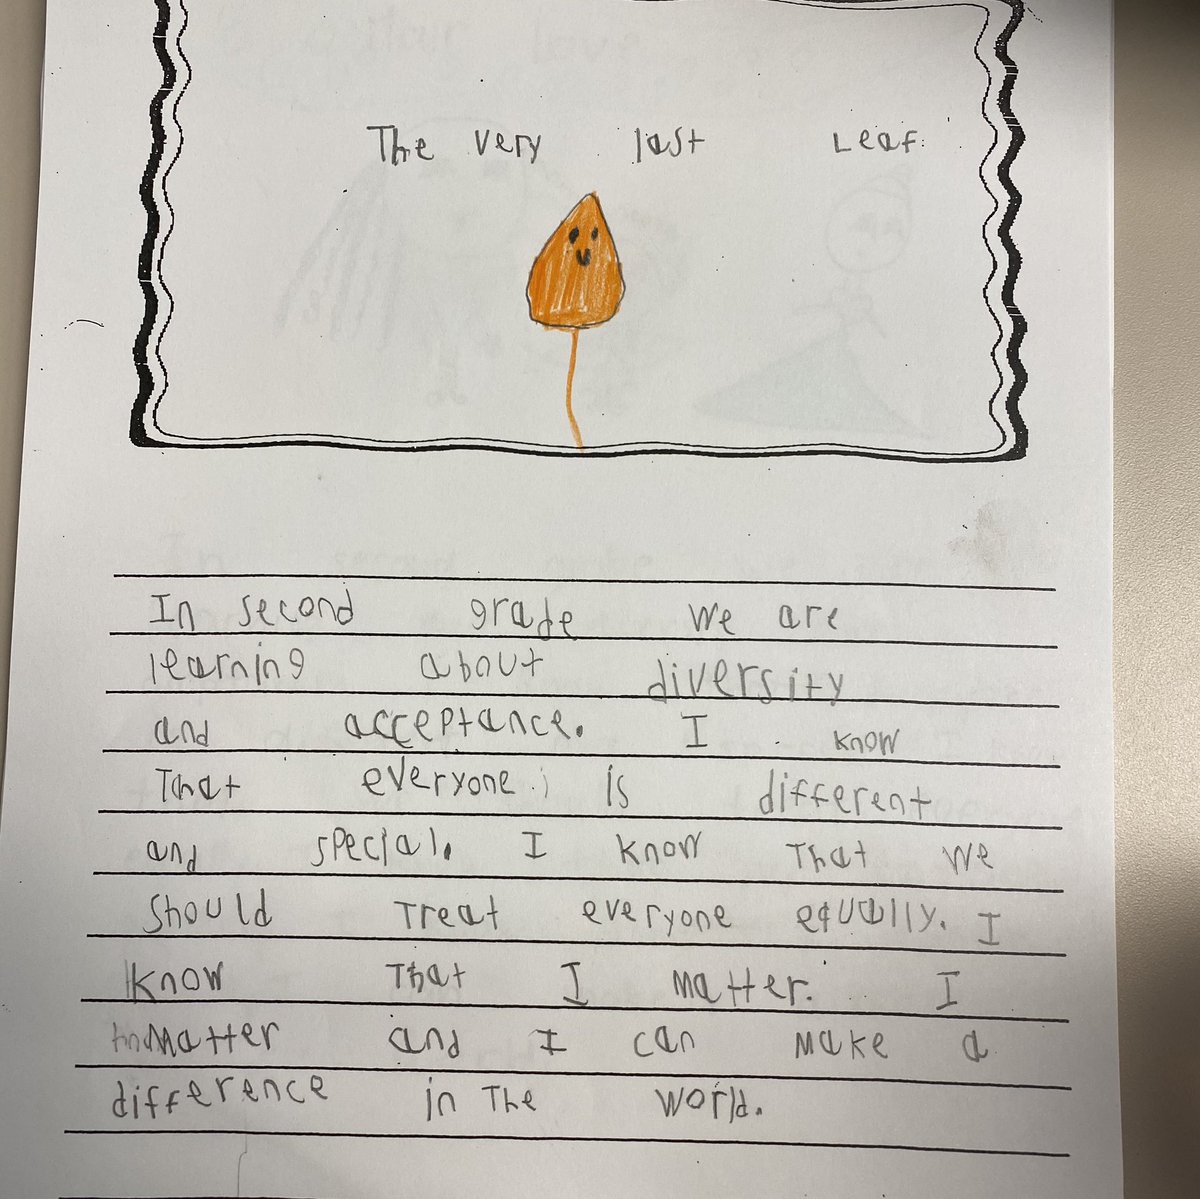 The very last Leaf.
In second grade we are
learning about diversity
and acceptance. I know
That everyone is different
and special. I know That we
should Treat everyone equally. I
know That I matter. I
matter and I can make a
difference in The world.